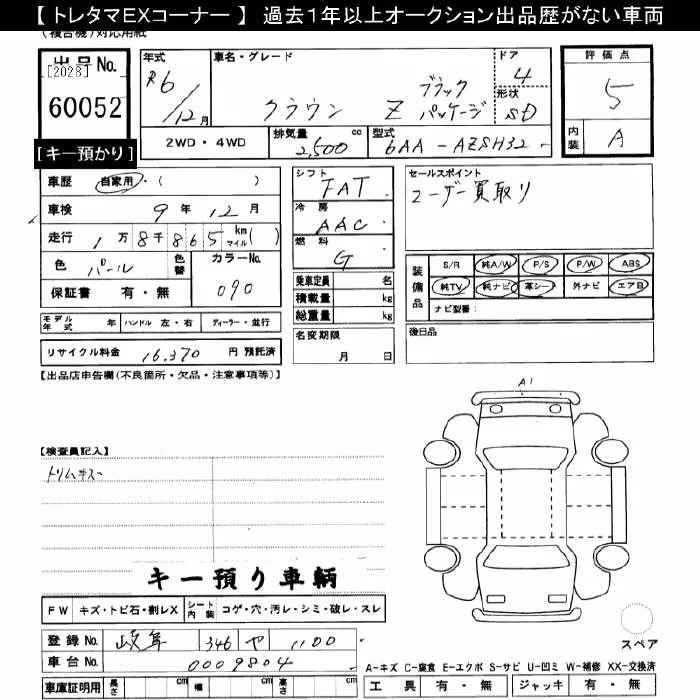 【 トレタマEXコーナー 】 過去1年以上オークション出品歴がない車両
(複合機)対応用紙
出品No.
[2028]
60052
[キー預かり]
年式 R6/12月
車名・グレード クラウン Z ブラックパッケージ
ドア 4
形状 SD
評価点 5
内装 A
2WD・4WD
排気量 2,500 cc
型式 6AA-AZSH32
車歴 自家用・( )
車検 9年12月
走行 1万8千865 km マイル( )
色 パール 色替
カラーNo. 090
保証書 有・無
シフト FAT
冷房 AAC
燃料 G
乗車定員 名
積載量 kg
総重量 kg
名変期限
月 日
セールスポイント
ユーザー買取り
装備品 S/R 純A/W P/S P/W ABS
純TV 純ナビ 革シート 外ナビ エアB
ナビ型番:
後日品
モデル年式 年 ハンドル 左・右 ディーラー・並行
リサイクル料金 16,370 円 預託済
【出品店申告欄(不良箇所・欠品・注意事項等)】
A1
【検査員記入】
トリムキズ~
キー預り車輌
FW キズ・トビ石・割レX シート内装 コゲ・穴・汚レ・シミ・破レ・スレ
登録No. 岐阜 346 や 1100
車台No. 0009804
車庫証明用 長さ cm 幅 cm 高さ cm
スペア
A-キズ C-腐食 E-エクボ S-サビ U-凹ミ W-補修 XX-交換済
工具 有・無 ジャッキ 有・無